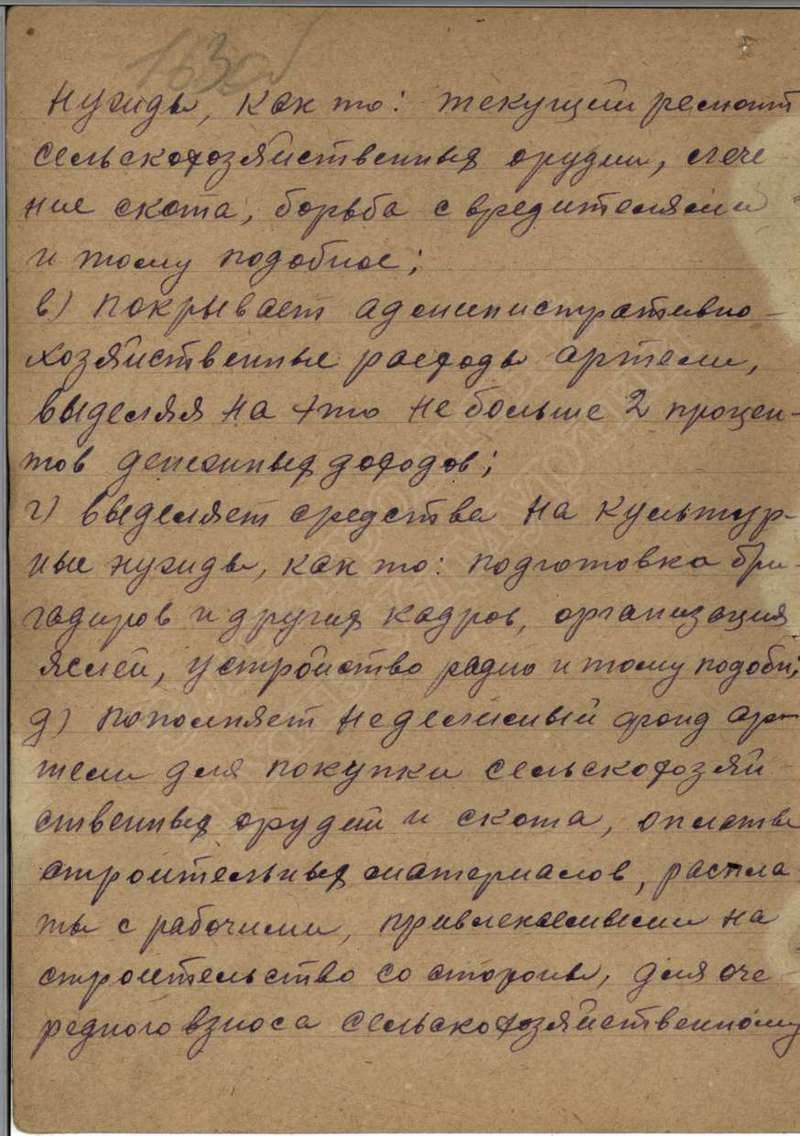 163об
нужды, как то: текущий ремонт
сельскохозяйственных орудий, лече
ние скота, борьба с вредителями
и тому подобное;
в) покрывает административно-
хозяйственные расходы артели,
выделяя на это не больше 2 процен-
тов денежных доходов;
г) выделяет средства на культур-
ные нужды, как то: подготовка бри-
гадиров и других кадров, организация
яслей, устройство радио и тому подобн;
д) пополняет неделимый фонд ар-
тели для покупки сельскохозяй
ственных орудий и скота, оплаты
строительных материалов, распла
ты с рабочими, привлекаемыми на
строительство со стороны, для оче
редного взноса сельскохозяйственному